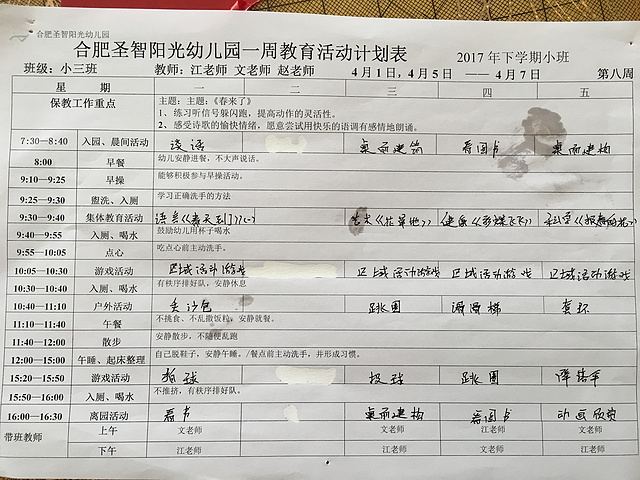 合肥圣智阳光幼儿园
合肥圣智阳光幼儿园一周教育活动计划表
2017年下学期小班
班级：小三班 教师：江老师 文老师 赵老师 4月1日，4月5日 —— 4月7日 第八周
星 期 一 二 三 四 五
保教工作重点
主题：主题：《春来了》
1、练习听信号躲闪跑，提高动作的灵活性。
2、感受诗歌的愉快情绪，愿意尝试用快乐的语调有感情地朗诵。
7:30—8:40 入园、晨间活动 谈话 桌面建筑 看图书 桌面建构
8:00 早餐 幼儿安静进餐，不大声说话。
9:10—9:25 早操 能够积极参与早操活动。
9:25—9:30 盥洗、入厕 学习正确洗手的方法
9:30—9:40 集体教育活动 语言《春天到了》(一) 艺术《花草地》 健康《彩蝶飞飞》
9:40—9:55 入厕、喝水 鼓励幼儿用杯子喝水
9:55—10:05 点心 吃点心前主动洗手。
10:05—10:30 游戏活动 区域活动游戏 区域活动游戏 区域活动游戏 区域活动游戏
10:30—10:40 入厕、喝水 有秩序排好队，安静休息
10:40—11:10 户外活动 丢沙包 跳圈 滑滑梯 套环
11:10—11:40 午餐 不挑食、不乱撒饭粒，安静就餐。
11:40—12:00 散步 安静散步，不随便乱跑
12:00—15:00 午睡、起床整理 自己脱鞋子，安静午睡。/餐点前主动洗手，并形成习惯。
15:20—15:50 游戏活动 拍球 投球 跳圈
15:50—16:00 入厕、喝水 不推挤，有秩序排好队。
16:00—16:30 离园活动 看书 桌面建构 看图书 动画欣赏
带班教师 上午 文老师 文老师 江老师 文老师
下午 江老师 江老师 文老师 江老师